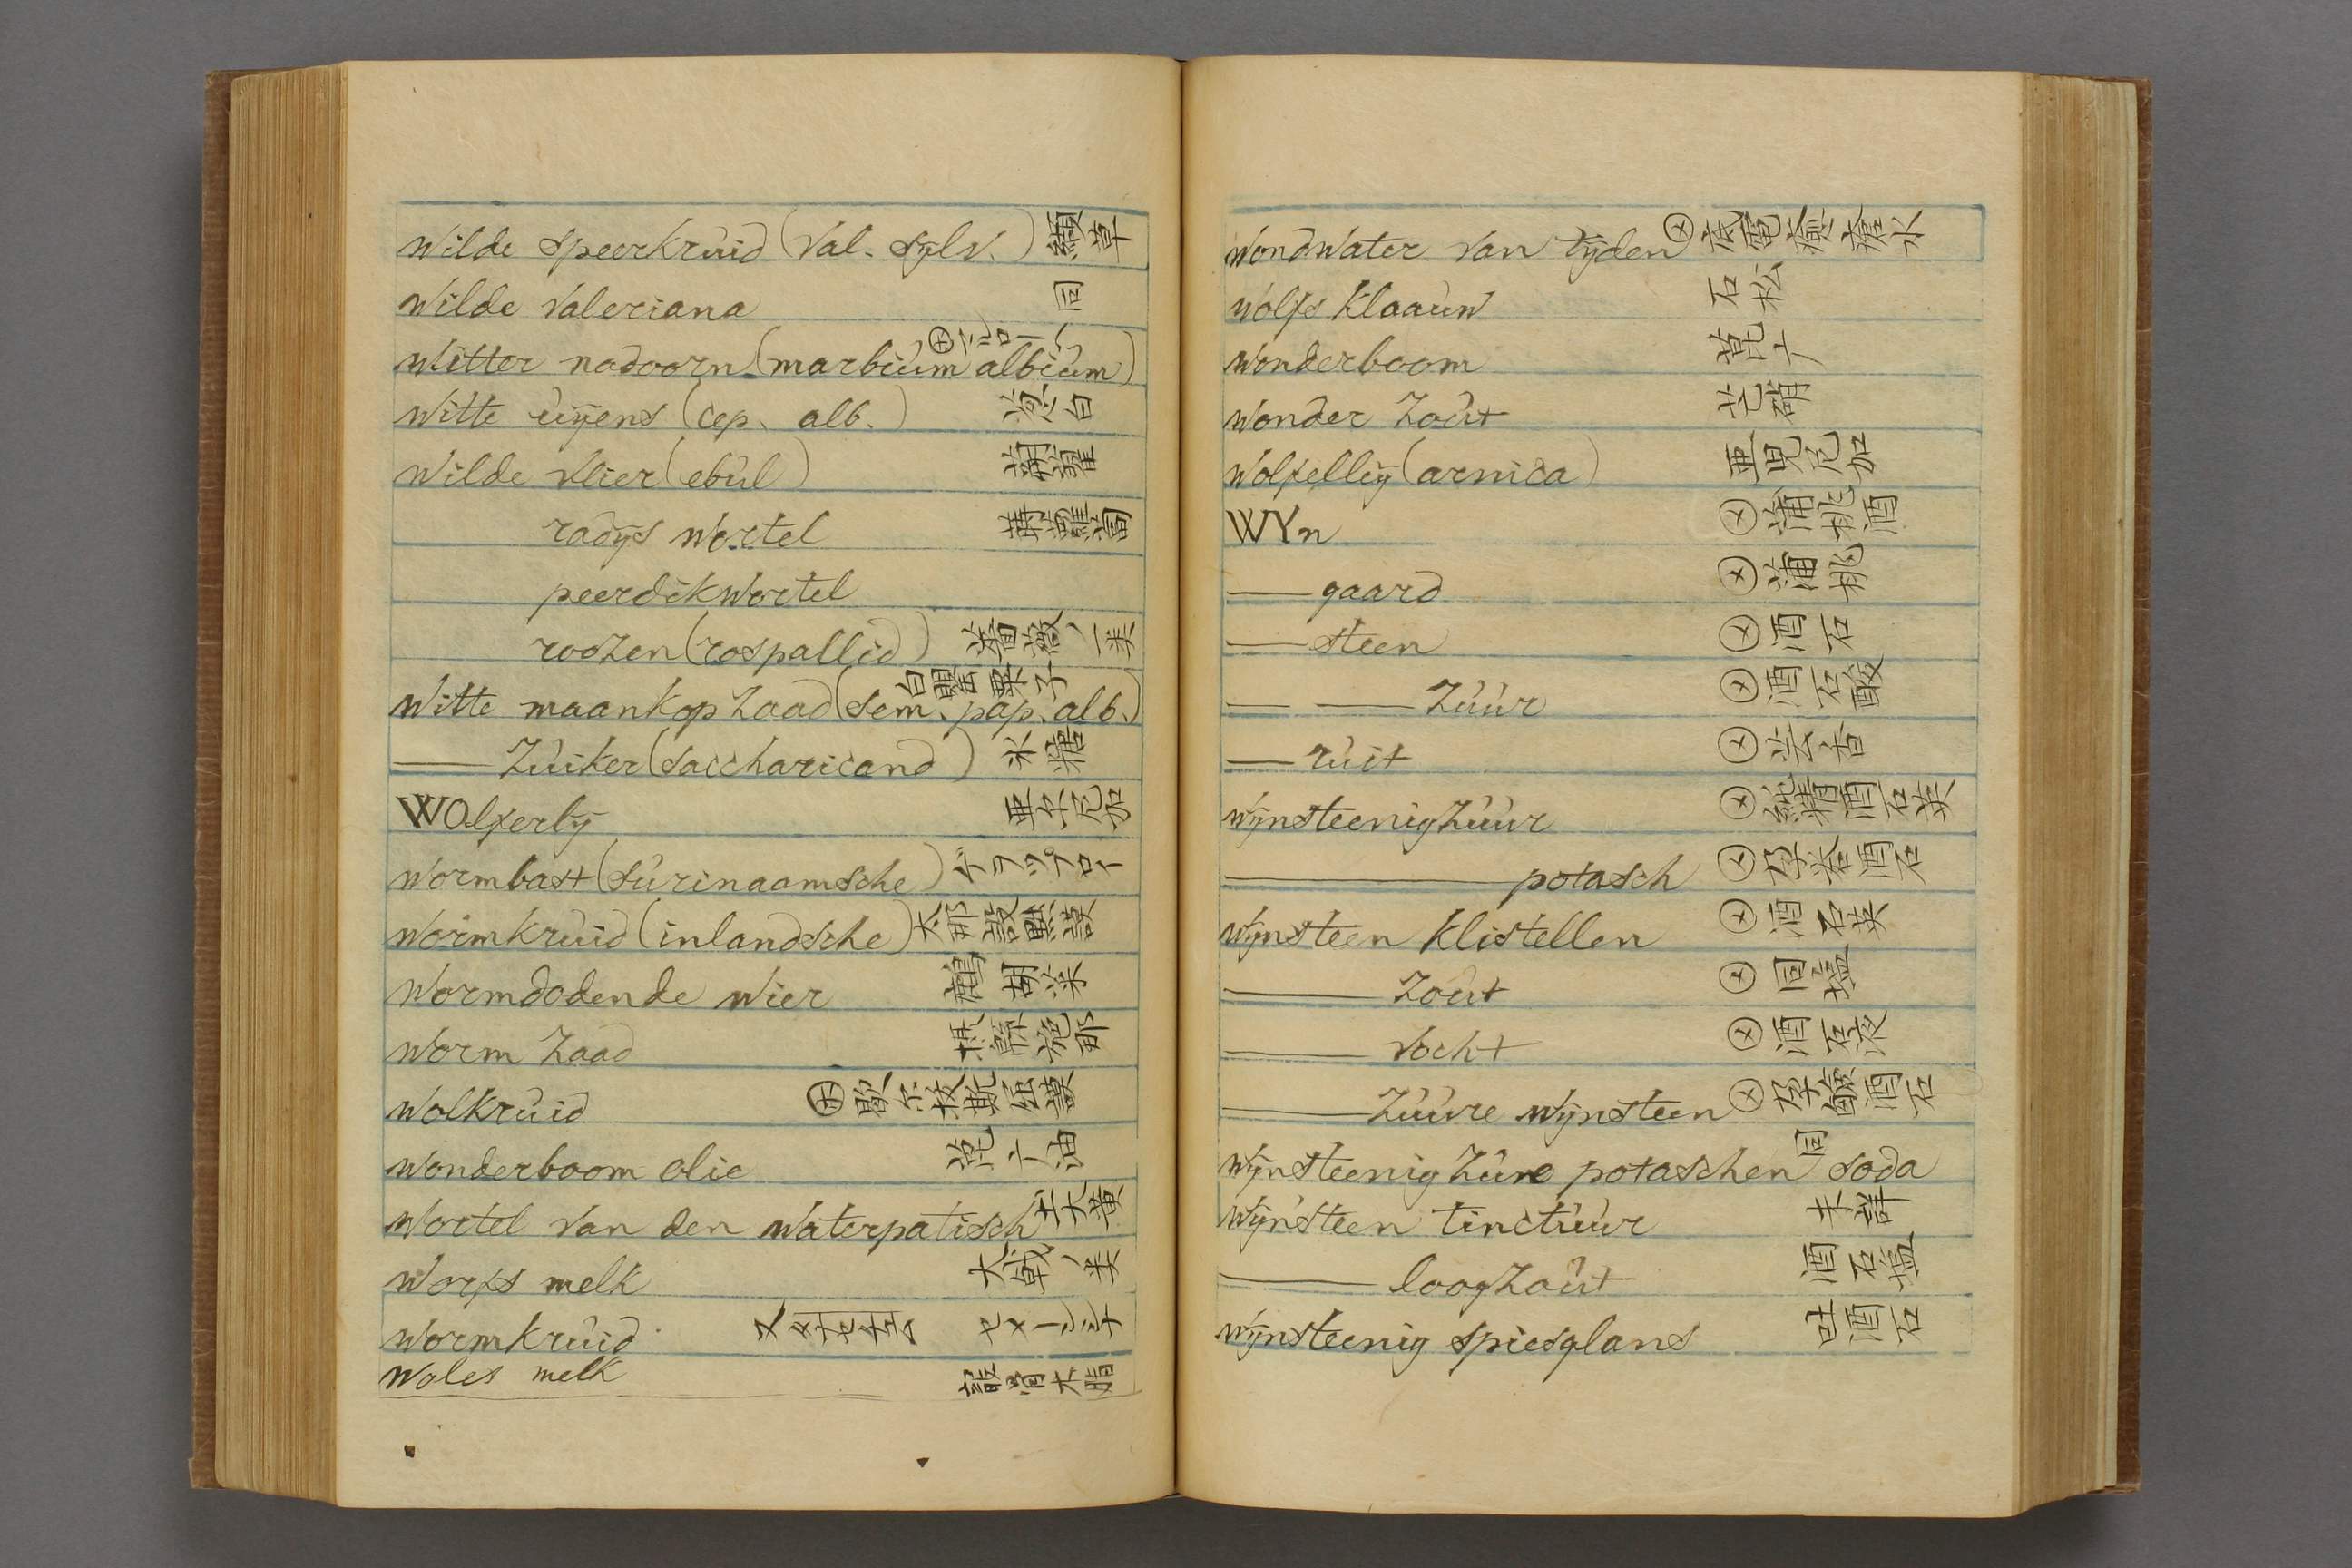 Wilde speerkrúid (Val. sÿlv.) 纈草
Wilde Valeriana 同
Witter nadoorn (marbiúm albiúm)
Witte úÿens (cep. alb.) 葱白
Wilde vlier (ebúl) 蒴藋
radÿs wortel
peerdikwortel
roozen (rospallid) 薔薇ノ一美
Witte maankop zaad (sem. pap. alb.) 白罌粟子
—— Zúiker (saccharicand) 氷糖
WOlferlÿ 亜尓尼加
Wormbast (súrinaamsche)
Wormkrúid (inlandsche)
Wormdodende wier 鷓胡菜
Worm zaad
Wolkrúid
Wonderboom olie 萞麻油
Wortel van den waterpatisch 土大黄
Worfs melk 大戟ノ美
Wormkrúid セメンシナ
Woles melk
Wondwater van tÿden
Wolfs klaaúw 石松
Wonderboom
Wonder zoút 芒硝
Wolfellÿ (arnica) 亜児尼加
WYn 蒲桃酒
—— gaard 蒲桃
—— steen 酒石
—— —— Zúúr 酒石酸
—— rúit 芸香
WÿnsteenigZúúr 純精酒石英
———— potasch 酒石
Wÿnsteen klistellen 酒石英
———— Zoút 同塩
———— Vocht 酒石液
———— Zúúre wÿnsteen 酒石
Wÿnsteenig Zúre potaschen soda 同
Wÿnsteen tinctúúr
———— loogZoút 酒石塩
Wÿnsteenig spiesglans 吐酒石